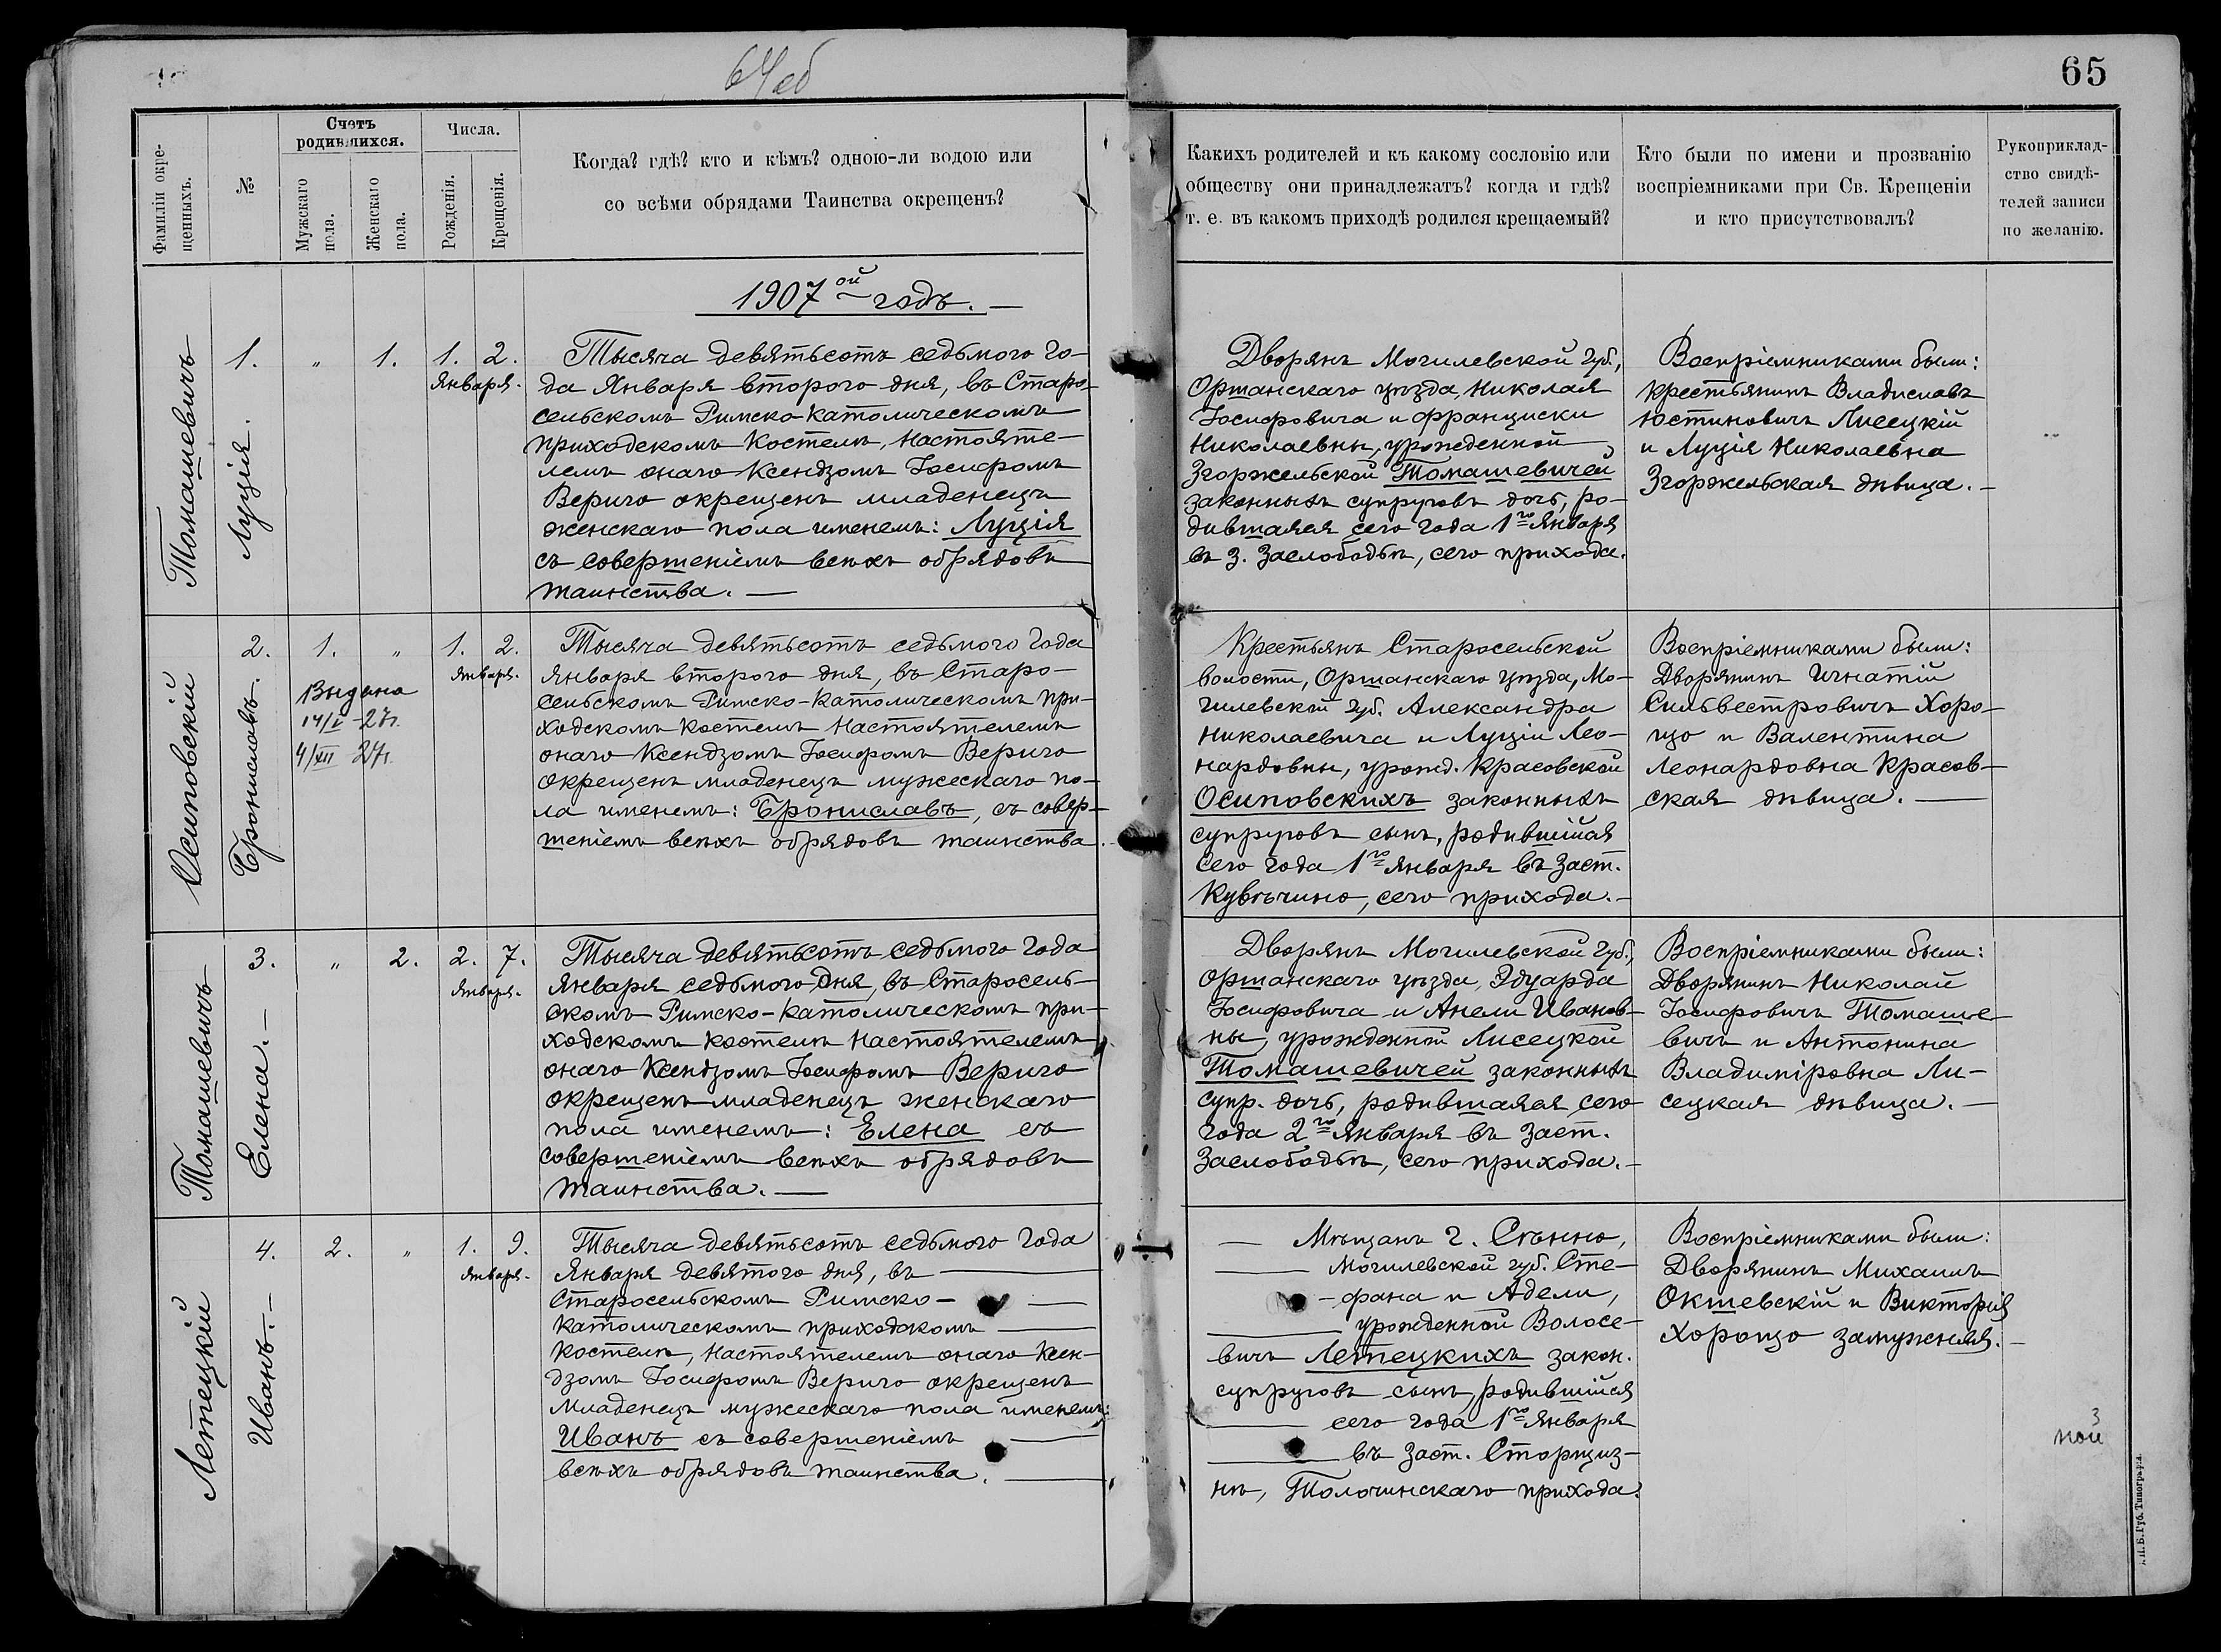 64об
65
Фамиліи окре-
щенныхъ.
№
Счетъ
родившихся.
Мужскаго
пола.
Женскаго
пола.
Числа.
Рожденія.
Крещенія.
Когда? гдѣ? кто и кѣмъ? одною-ли водою или
со всѣми обрядами Таинства окрещенъ?
Какихъ родителей и къ какому сословію или
обществу они принадлежатъ? когда и гдѣ?
т. е. въ какомъ приходѣ родился крещаемый?
Кто были по имени и прозванію
воспріемниками при Св. Крещеніи
и кто присутствовалъ?
Рукоприклад-
ство свидѣ-
телей записи
по желанію.
1907ой годъ. —
Томашевичъ
Луція.
1.
"
1.
1. 2.
Января.
Тысяча девятьсотъ седьмого го-
да Января второго дня, въ Старо-
сельскомъ Римско-католическомъ
приходскомъ костелѣ, настояте-
лемъ онаго Ксендзомъ Іосифомъ
Вериго окрещенъ младенецъ
женскаго пола именемъ: Луція
съ совершеніемъ всѣхъ обрядовъ
таинства. —
Дворянъ Могилевской губ.,
Оршанскаго уѣзда, Николая
Іосифовича и Франциски
Николаевны, урожденной
Згоржельской Томашевичей
законныхъ супруговъ дочь, ро-
дившаяся сего года 1го Января
въ з. Заслободьѣ, сего прихода.
Воспріемниками были:
крестьянинъ Владиславъ
Юстиновичъ Лисецкій
и Луція Николаевна
Згоржельская дѣвица. —
Осиповскій
Брониславъ.
2.
1.
"
1. 2.
Января.
Выдана
14/V -27г.
4/XII 27г.
Тысяча девятьсотъ седьмого года
Января второго дня, въ Старо-
сельскомъ Римско-католическомъ при-
ходскомъ костелѣ настоятелемъ
онаго Ксендзомъ Іосифомъ Вериго
окрещенъ младенецъ мужескаго по-
ла именемъ: Брониславъ, съ совер-
шеніемъ всѣхъ обрядовъ таинства.
Крестьянъ Старосельской
волости, Оршанскаго уѣзда, Мо-
гилевской губ. Александра
Николаевича и Луціи Лео-
нардовны, урожд. Красовской
Осиповскихъ законныхъ
супруговъ сынъ, родившійся
сего года 1го Января въ заст.
Кувѣчино, сего прихода. —
Воспріемниками были:
Дворянинъ Игнатій
Сильвестровичъ Хоро-
що и Валентина
Леонардовна Красов-
ская дѣвица. —
Томашевичъ
Елена. —
3.
"
2.
2. 7.
Января.
Тысяча девятьсотъ седьмого года
Января седьмого дня, въ Старосель-
скомъ Римско-католическомъ при-
ходскомъ костелѣ настоятелемъ
онаго Ксендзомъ Іосифомъ Вериго
окрещенъ младенецъ женскаго
пола именемъ: Елена съ
совершеніемъ всѣхъ обрядовъ
таинства. —
Дворянъ Могилевской губ.,
Оршанскаго уѣзда, Эдуарда
Іосифовича и Анели Иванов-
ны, урожденной Лисецкой
Томашевичей законныхъ
супр. дочь, родившаяся сего
года 2го Января въ заст.
Заслободьѣ, сего прихода. —
Воспріемниками были:
Дворянинъ Николай
Іосифовичъ Томаше-
вичъ и Антонина
Владиміровна Ли-
сецкая дѣвица. —
Летецкій
Иванъ. —
4.
2.
"
1. 9.
Января.
Тысяча девятьсотъ седьмого года
Января девятого дня, въ
Старосельскомъ Римско-
католическомъ приходскомъ
костелѣ, настоятелемъ онаго Ксен-
дзомъ Іосифомъ Вериго окрещенъ
младенецъ мужескаго пола именемъ:
Иванъ съ совершеніемъ
всѣхъ обрядовъ таинства.
Мѣщанъ г. Сѣнно,
Могилевской губ. Сте-
фана и Адели,
урожденной Волосе-
вичъ Летецкихъ закон.
супруговъ сынъ, родившійся
сего года 1го Января
въ заст. Сторщиз-
нѣ, Толочинскаго прихода.
Воспріемниками были:
Дворянинъ Михаилъ
Окшевскій и Викторія
Хорощо замужняя. —